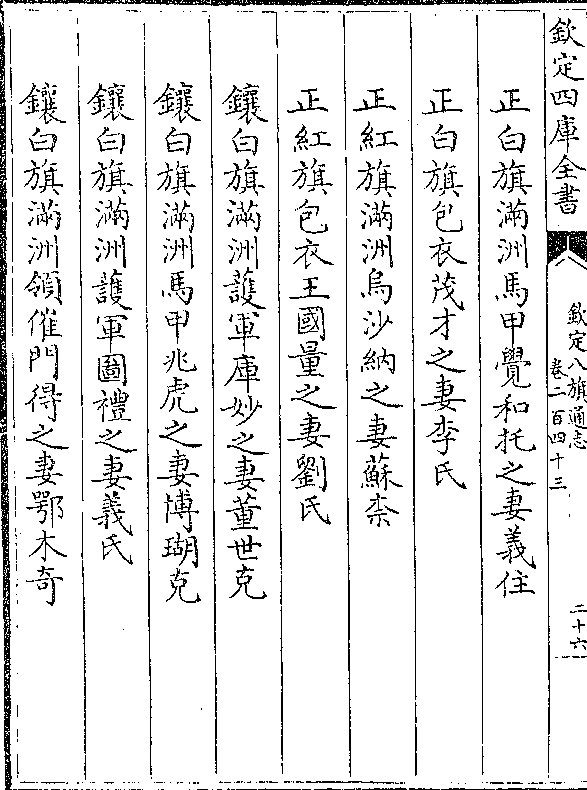 欽定四庫全書
欽定八旗通志
卷二百四十三
二十六
正白旗滿洲馬甲覺和托之妻義住
正白旗包衣茂才之妻李氏
正紅旗滿洲烏沙納之妻蘇柰
正紅旗包衣王國量之妻劉氏
鑲白旗滿洲護軍庫妙之妻董世克
鑲白旗滿洲馬甲兆虎之妻博瑚克
鑲白旗滿洲護軍圖禮之妻義氏
鑲白旗滿洲領催門得之妻鄂木奇